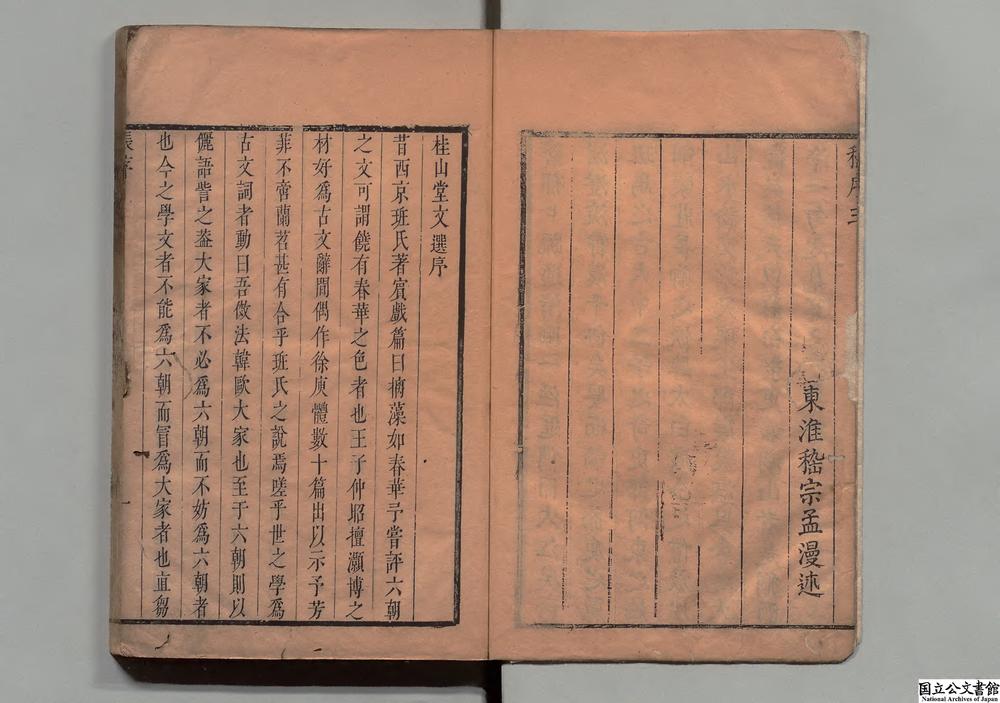 嵇序三
東淮嵇宗孟漫述
桂山堂文選序
昔西京班氏著賓戲篇曰摛藻如春華予嘗評六朝
之文可謂饒有春華之色者也王子仲昭擅灝博之
材好爲古文辭間偶作徐庾體數十篇出以示予芳
菲不啻蘭茗甚有合乎班氏之說焉嗟乎世之學爲
古文詞者動曰吾倣法韓歐大家也至于六朝則以
儷語訾之葢大家者不必爲六朝而不妨爲六朝者
也今之學文者不能爲六朝而冐爲大家者也直芻
一
国立公文書館
National Archives of Japan